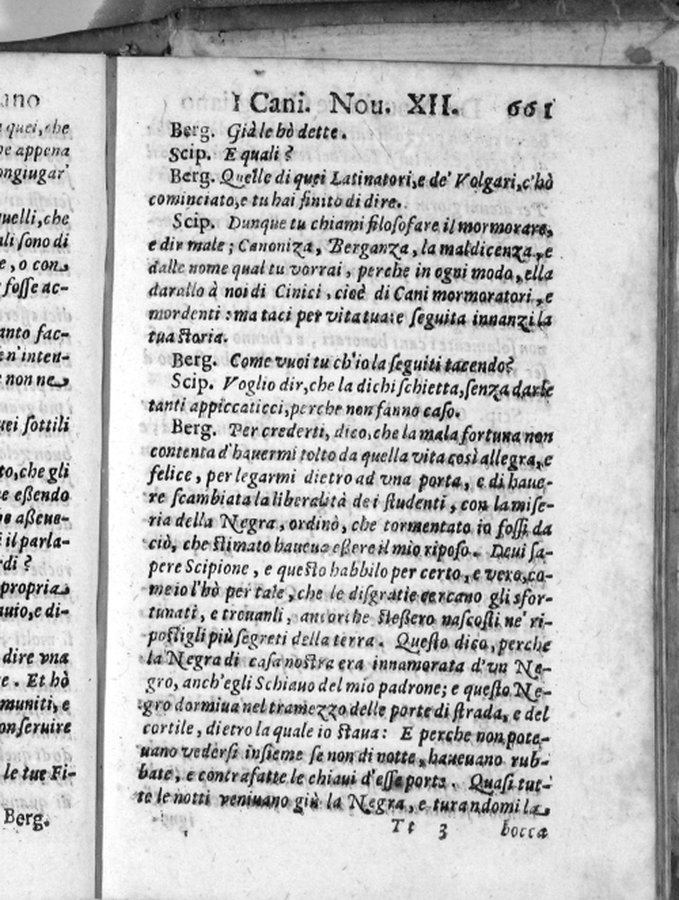 ano
quei, che
e appena
ongiugar'
uelli, che
ali sono di
e, o con
fosse ac-
anto fac-
e n'inten-
e non ne
uei sottili
to, che gli
e eßendo
aßeue-
il parla-
rdi ?
propria
uio, e di-
dire vna
e. Et hò
muniti, e
onseruire
le tue Fi-
Berg.
I Cani. Nou. XII. 661
Berg. Già le hò dette.
Scip. E quali ?
Berg. Quelle di quei Latinatori, e de' Volgari, c'hò
cominciato, e tu hai finito di dire.
Scip. Dunque tu chiami filosofare il mormorare,
e dir male ; Canoniza, Berganza, la maldicenza, e
dalle nome qual tu vorrai, perche in ogni modo, ella
darallo à noi di Cinici, cioè di Cani mormoratori, e
mordenti : ma taci per vita tua e seguita innanzi la
tua storia.
Berg. Come vuoi tu ch'io la seguiti tacendo?
Scip. Voglio dir, che la dichi schietta, senza darle
tanti appiccaticci, perche non fanno caso.
Berg. Per crederti, dico, che la mala fortuna non
contenta d'hauermi tolto da quella vita così allegra, e
felice, per legarmi dietro ad vna porta, e di haue-
re scambiata la liberalità de i studenti, con la mise-
ria della Negra, ordinò, che tormentato io fossi da
ciò, che stimato haueua eßere il mio riposo. Deui sa-
pere Scipione, e questo habbilo per certo, e vero, co-
me io l'hò per tale, che le disgratie cercano gli sfor-
tunati, e trouanli, ancorche steßero nascosti ne' ri-
postigli più segreti della terra. Questo dico, perche
la Negra di casa nostra era innamorata d'vn Ne-
gro, anch'egli Schiauo del mio padrone; e questo Ne-
gro dormiua nel tramezzo delle porte di strada, e del
cortile, dietro la quale io staua: E perche non pote-
uano vedersi insieme se non di notte, haueuano rub-
bate, e contrafatte le chiaui d'esse porte. Quasi tut-
te le notti veniuano giù la Negra, e turandomi la
Tt 3 bocca